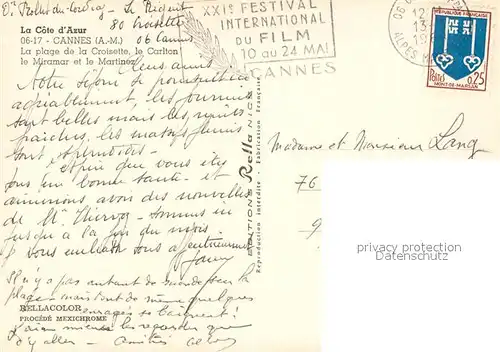 Le Régent
80 Croisette
06 Cannes
La Côte d'Azur
06-17 - CANNES (A.-M.)
La plage de la Croisette, le Carlton
le Miramar et le Martinez
XXIe FESTIVAL
INTERNATIONAL
DU FILM
10 au 24 MAI
CANNES
RÉPUBLIQUE FRANÇAISE
Postes 0,25
MONT-DE-MARSAN
ALPES
Chers amis
Notre séjour se poursuit
agréablement, les journées
sont belles mais les nuits
fraîches, les
sont splendides
que vous êtes
tous en bonne santé et
aimerions avoir des nouvelles
de Mr Thierry - Sommes ici
jusqu'à la fin du mois
vous embrasse tous affectueusement
Il n'y a pas autant de monde sur la
plage - mais tout de même quelques
enragés se baignent!
J'aime mieux les regarder que
d'y aller - amitiés
RELLACOLOR
PROCÉDÉ MEXICHROME
EDITIONS Rella NICE
Reproduction Interdite - Fabrication Française
Madame et Monsieur Lang
76
9
privacy protection